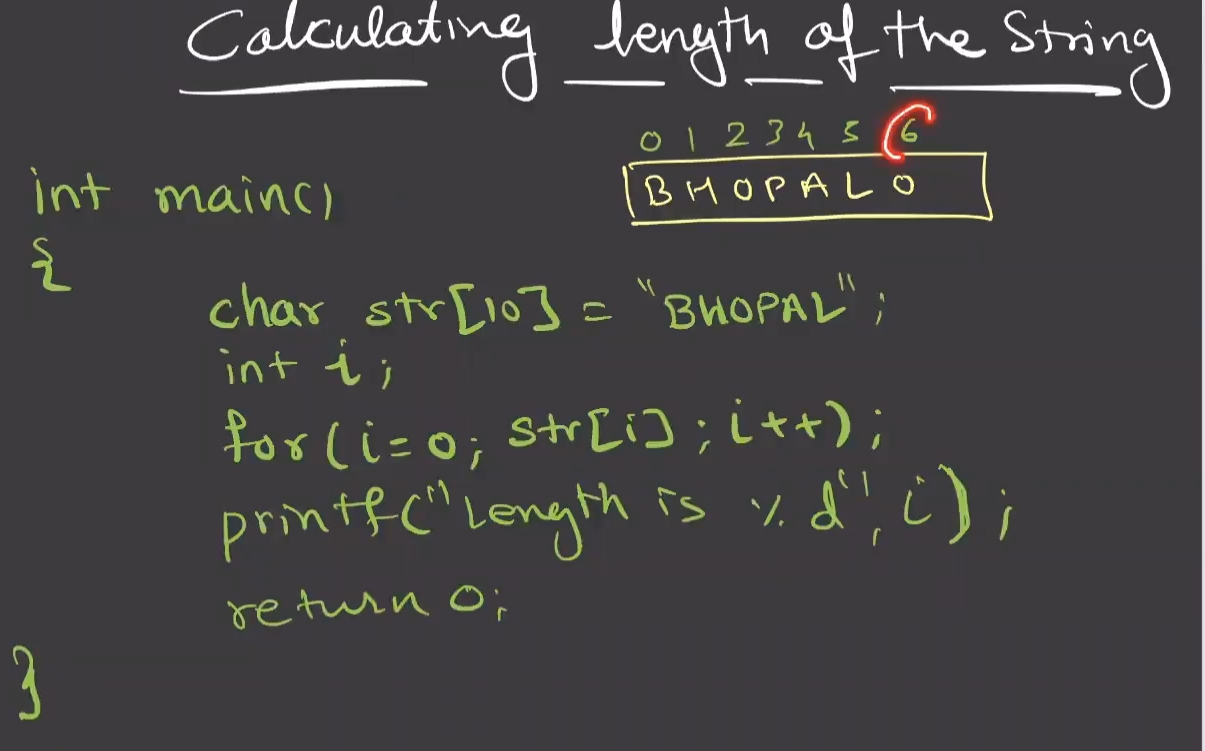 Calculating length of the String
0 1 2 3 4 5 6
B H O P A L 0
int main()
{
char str[10] = "BHOPAL";
int i;
for(i=0; str[i]; i++);
printf("Length is %d", i);
return 0;
}